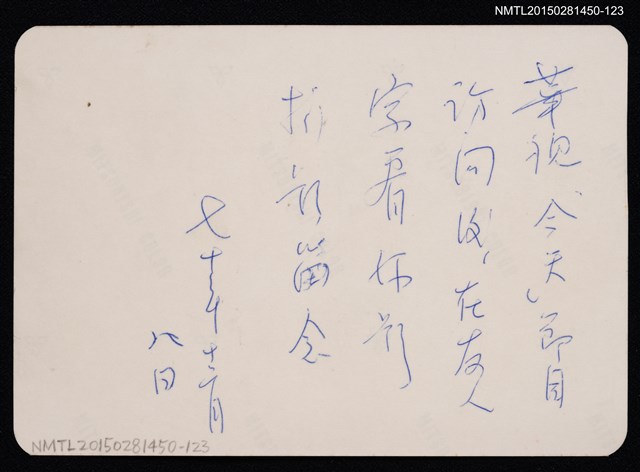 NMTL20150281450-123
華視「今天」節目
訪問後，在友人
家看你影
拍影留念
七十三年十二月
八日
NMTL20150281450-123